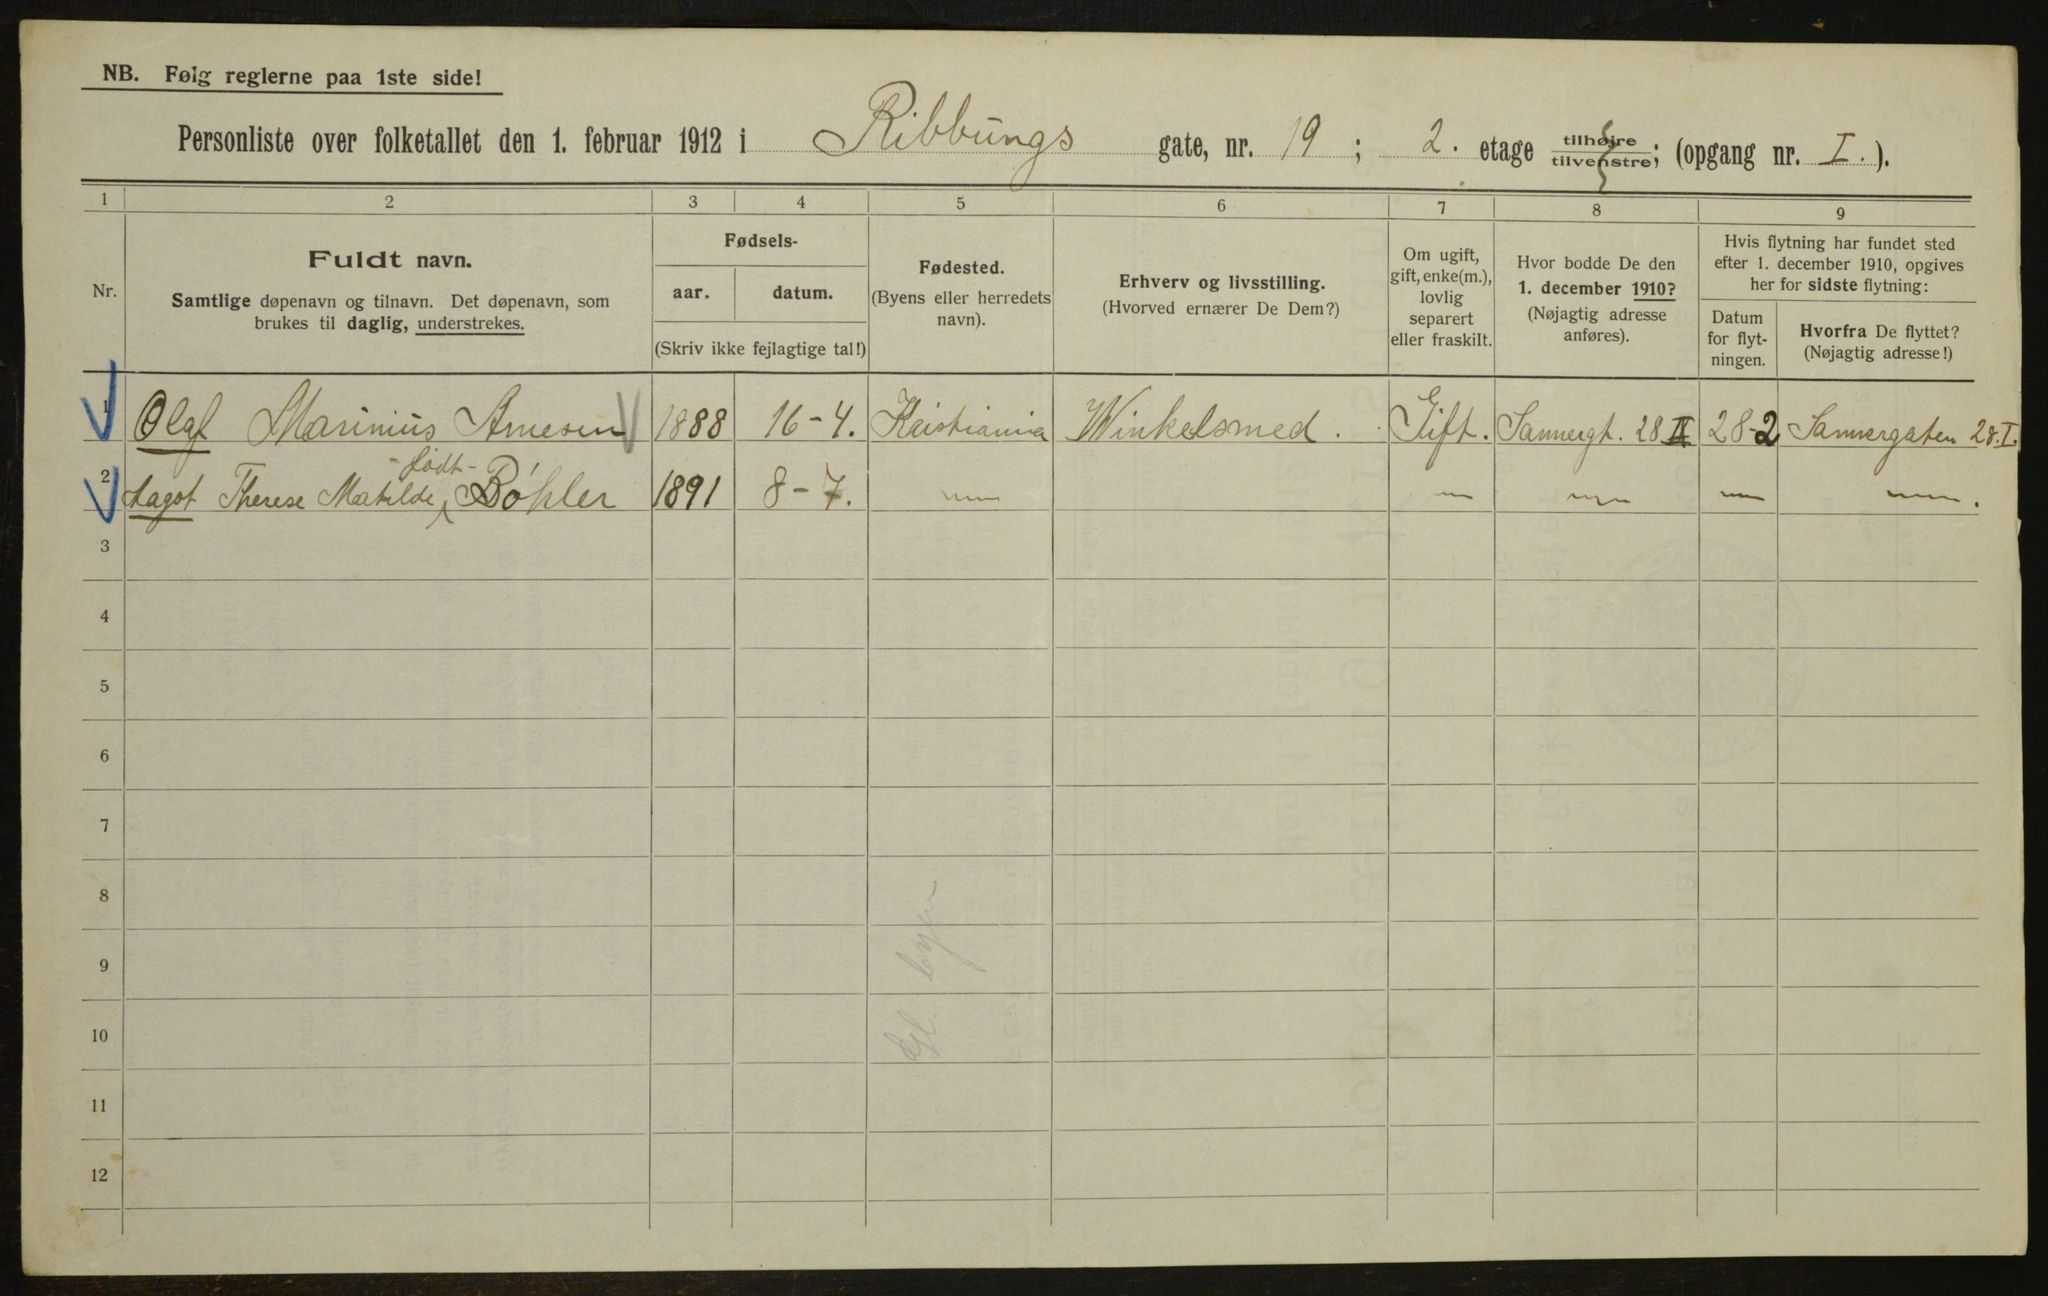 NB. Følg reglerne paa 1ste side!
Personliste over folketallet den 1. februar 1912 i Ribbungs gate, nr. 19 ; 2. etage tilhøjre tilvenstre; (opgang nr. I. ).
1 2 3 4 5 6 7 8 9
Nr.
Fuldt navn.
Samtlige døpenavn og tilnavn. Det døpenavn, som
brukes til daglig, understrekes.
Fødsels-
aar. datum.
(Skriv ikke fejlagtige tal!)
Fødested.
(Byens eller herredets
navn).
Erhverv og livsstilling.
(Hvorved ernærer De Dem?)
Om ugift,
gift, enke(m.),
lovlig
separert
eller fraskilt.
Hvor bodde De den
1. december 1910?
(Nøjagtig adresse
anføres).
Hvis flytning har fundet sted
efter 1. december 1910, opgives
her for sidste flytning:
Datum
for flyt-
ningen.
Hvorfra De flyttet?
(Nøjagtig adresse!)
1 Olaf Marinius Arnesen 1888 16-4. Kristiania Winkelsmed. Gift. Sannergt. 28 II 28-2 Sannergaten 28.I.
-født-
2 Aagot Therese Matilde Böhler 1891 8-7. — — — — —.
3
4
5
6
7
8
9
10
11
12